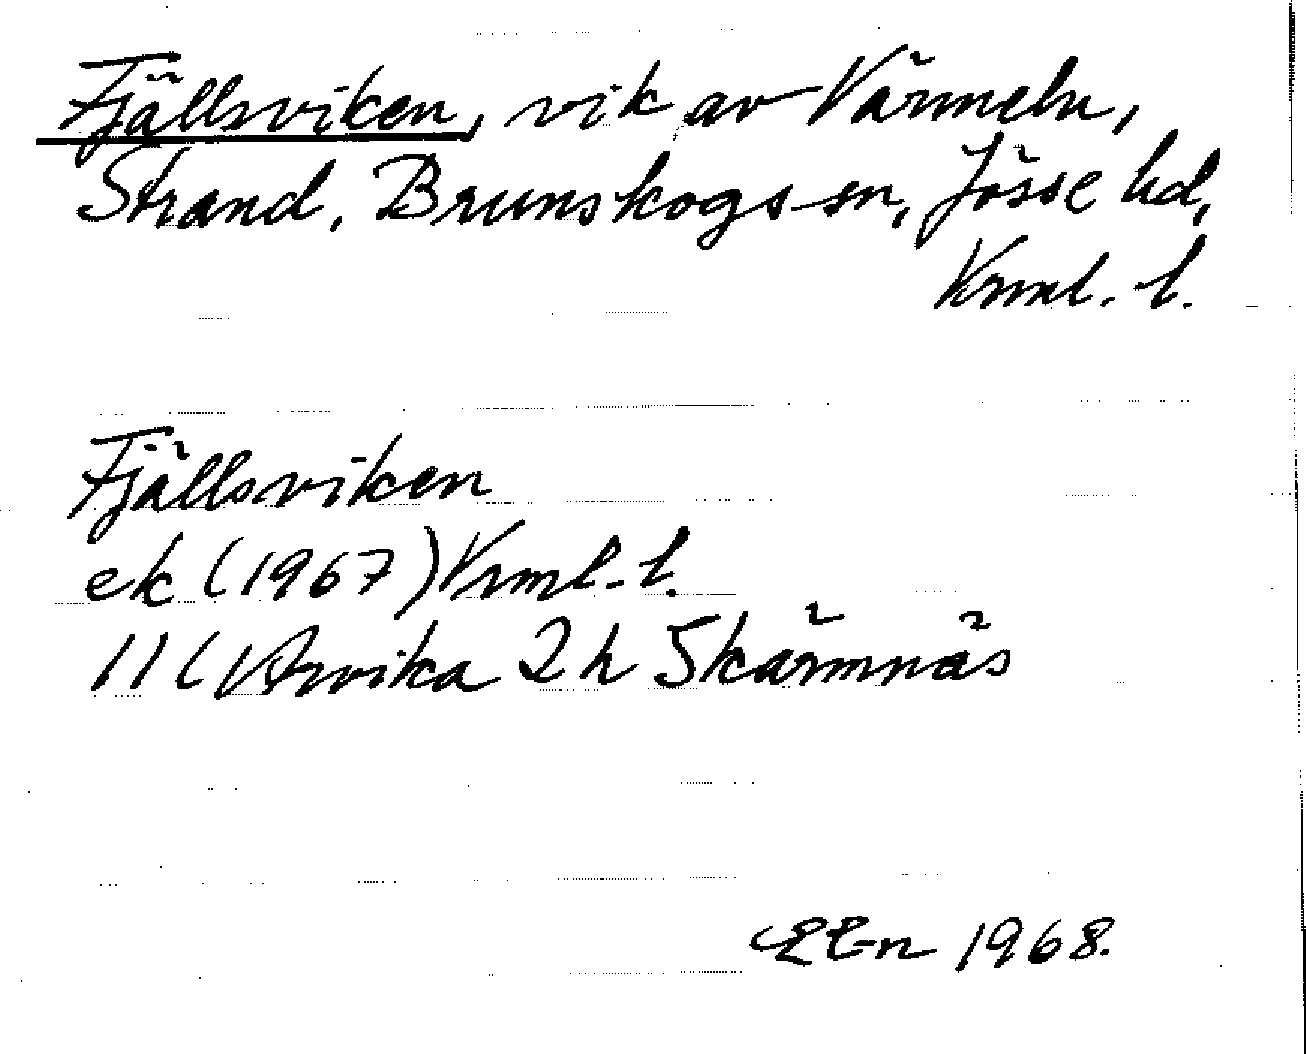 Fjällsviken, vik av Värmeln,
Strand, Brunskogs sn, Jösse hd,
Vrml. l.
Fjällsviken
ek (1967) Vrml. l.
11 C Arvika 2 h Skärmnäs
1968.